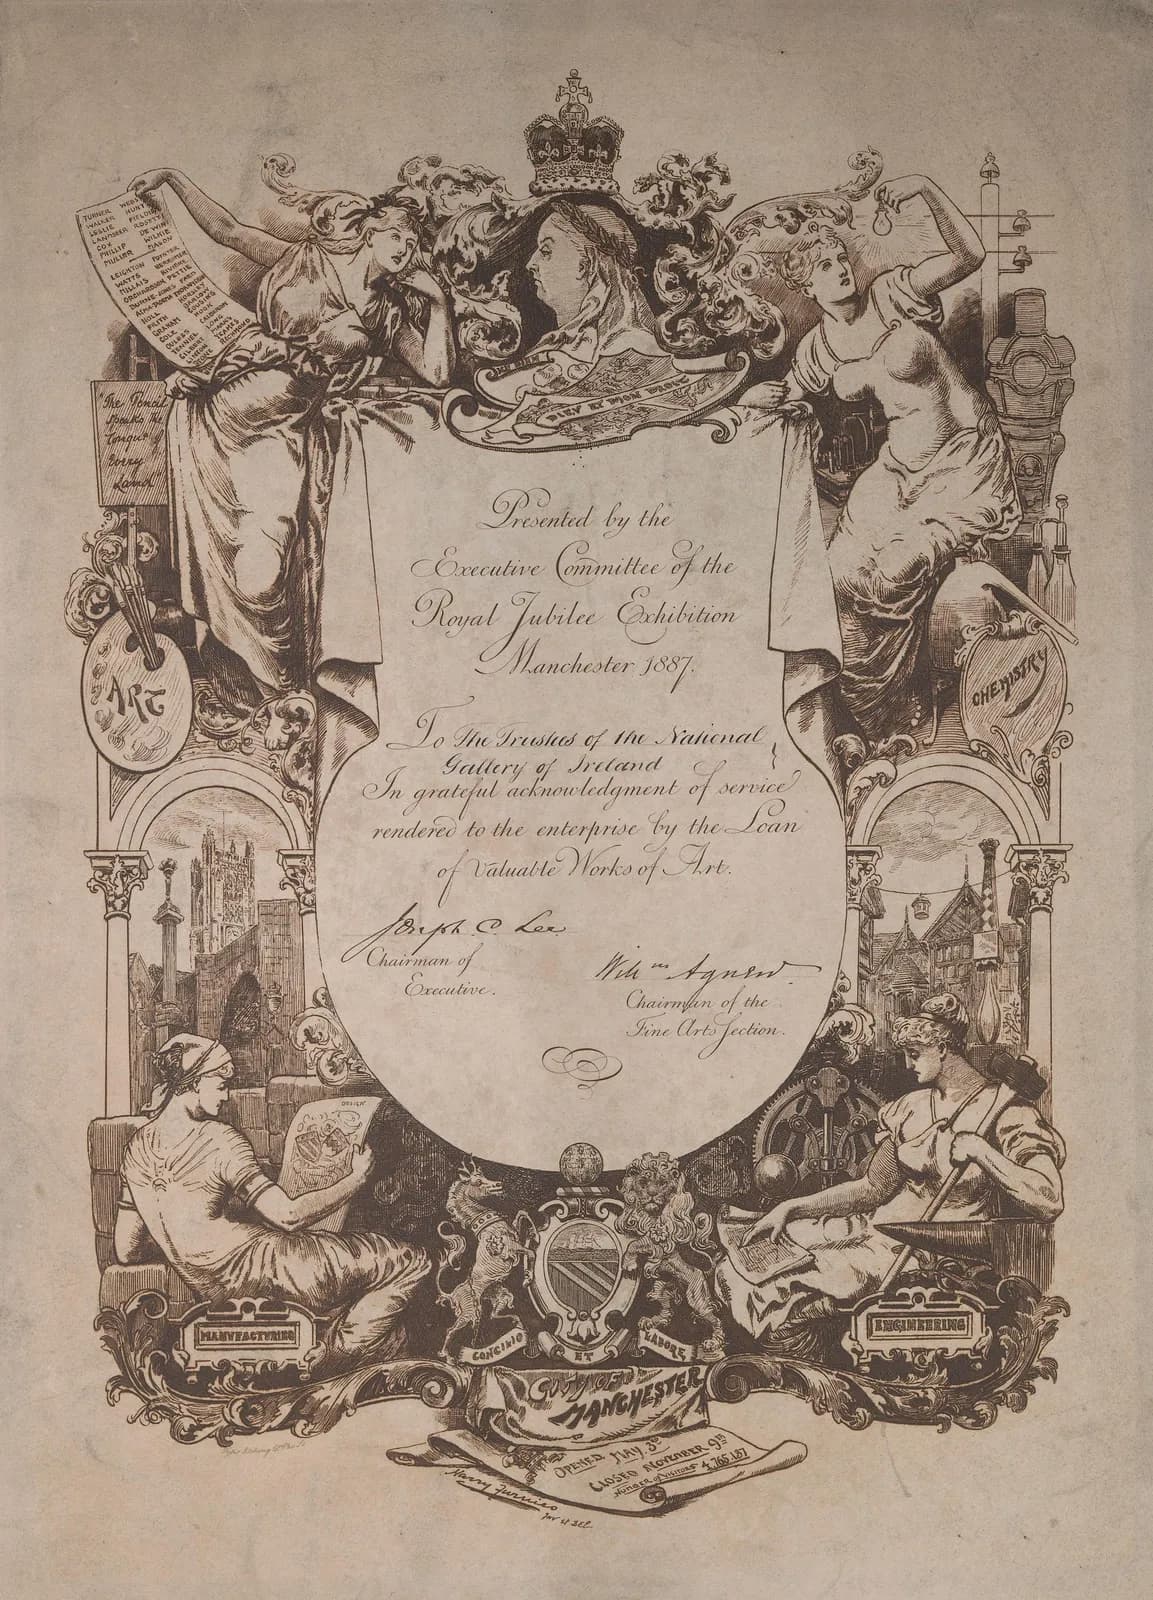 TURNER WEBS
WALKER HUNT
LESLIE FIELDING
LANDSEER ROSETTI
COX DE WINT
PHILLIP WILKIE
MULLER DANBY
LEIGHTON POYNTER
WATTS HERKOMER
MILLAIS RIVIERE
ORCHARDSON PETTIE
BURNE JONES
ALMA
HOLL
FRITH
GRAHAM
COLE
OULESS
TENNIEL
GILBERT
The Pencil
Speaks the
Tongue of
Every
Land
ART
DIEV ET MON DROIT
CHEMISTRY
Presented by the
Executive Committee of the
Royal Jubilee Exhibition
Manchester 1887.
To The Trustees of the National
Gallery of Ireland
In grateful acknowledgment of service
rendered to the enterprise by the Loan
of Valuable Works of Art.
Joseph C. Lee
Chairman of
Executive.
Willm Agnew
Chairman of the
Fine Arts Section.
DESIGN
MANUFACTURING
ENGINEERING
CONCILIO ET LABORE
CITY OF
MANCHESTER
OPENED MAY 3RD
CLOSED NOVEMBER 9TH
NUMBER OF VISITORS 4,765,137
Harry Furniss
Inv et Del